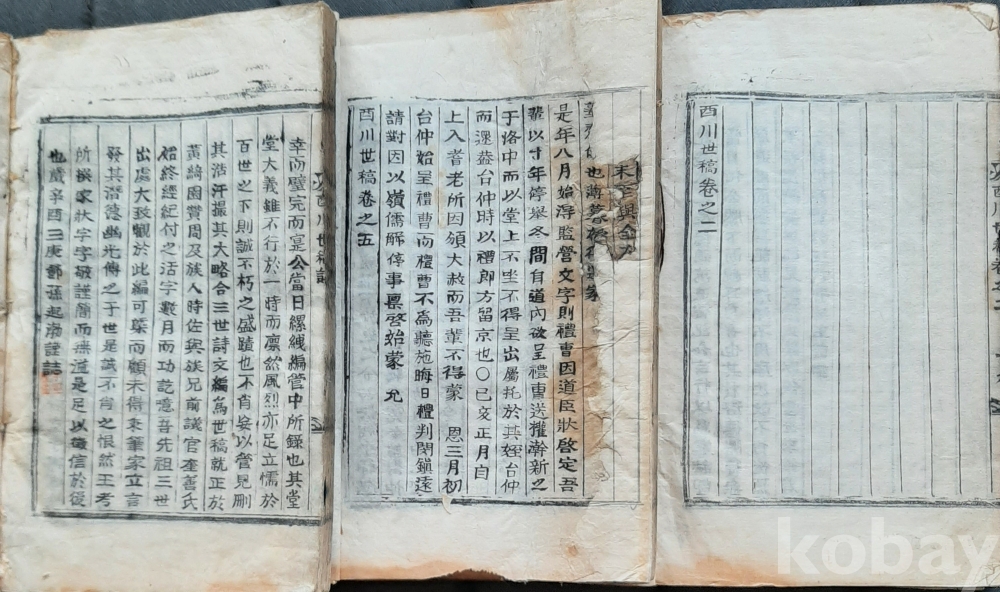 幸而璧完而寔公當日縲絏編管中所錄也其堂
堂大義雖不行於一時而凛然風烈亦足立懦於
百世之下則誠不朽之盛蹟也不肖妄以管見刪
其浩汗撮其大略合三世詩文編爲世稿就正於
黃綺園贊周及族人時佐與族兄前議官奎善氏
始終經紀付之活字數月而功訖噫吾先祖三世
出處大致觀於此編可槩而顧未得秉筆家立言
發其潛德幽光傳之于世是誠不肖之恨然王考
所撰家狀字字敬謹簡而無道是足以徵信於後
也歲辛酉三庚 孫起 謹誌
是年八月始淂監營文字則禮曹因道臣狀啓定吾
輩以十年停舉冬間自道內欲呈禮曹送權瀚新之
于洛中而以堂上不坐不得呈出屬托於其姪台仲
而還盖台仲時以禮郎方留京也〇已交正月自
上入耆老所因頒大赦而吾輩不得蒙 恩三月初
台仲始呈禮曹而禮曹不爲聽施晦日禮判閔鎭遠
請對因以嶺儒解停事禀啓始蒙 允
酉川世稿卷之五
酉川世稿卷之二
kobay